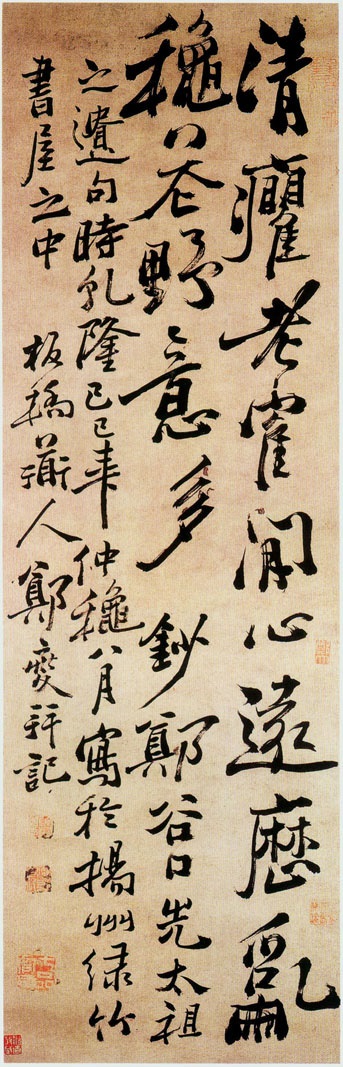 清癯老寉閒心遠歷亂
龝花野意多 鈔鄭谷口先太祖
之遺句時乾隆己巳年仲龝八月寫於揚州绿竹
書屋之中 板橋衜人鄭燮并記